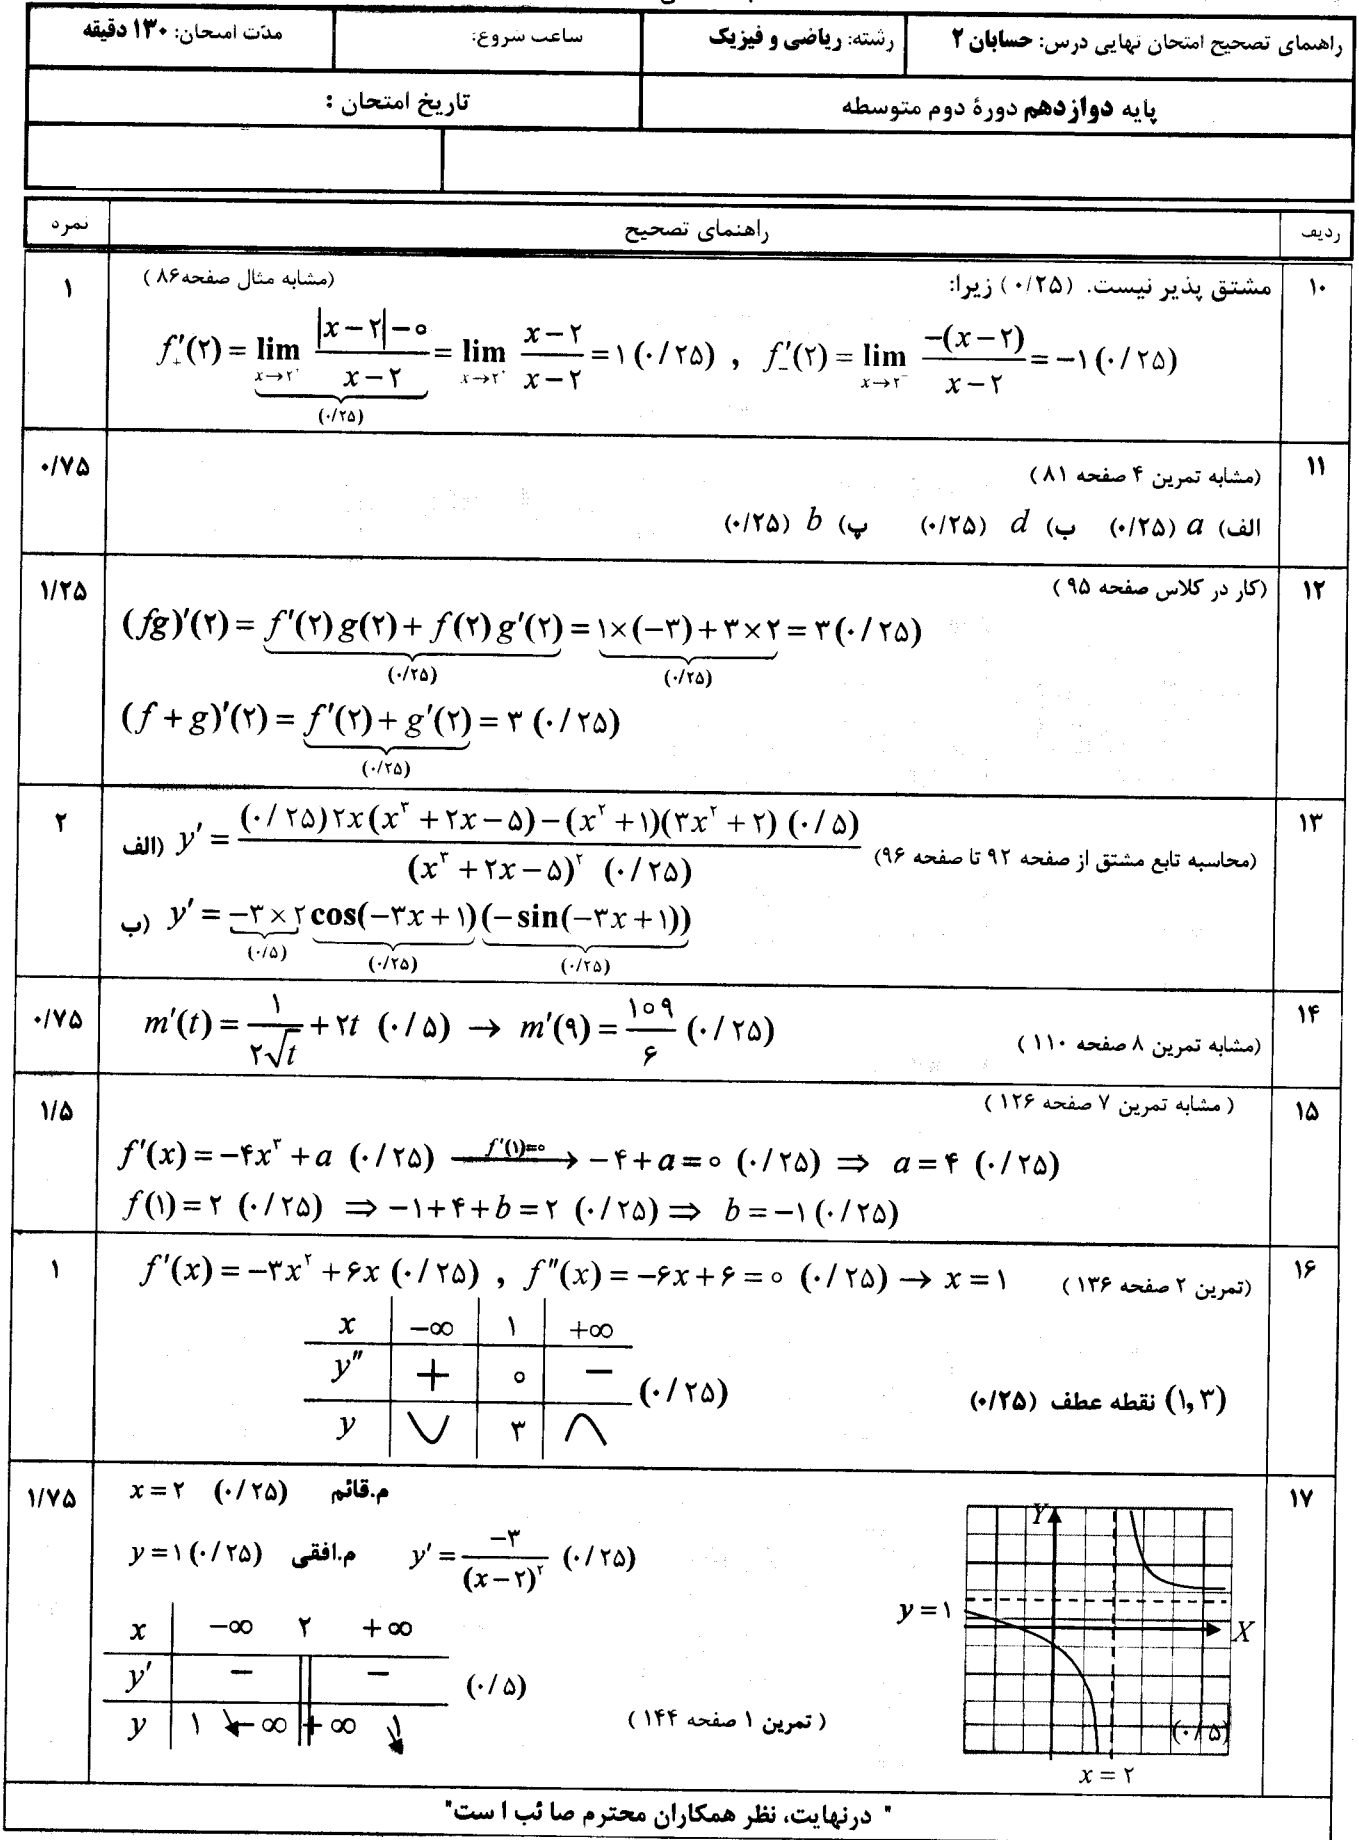 راهنمای تصحیح امتحان نهایی درس: حسابان ۲
رشته: ریاضی و فیزیک
ساعت شروع:
مدّت امتحان: ۱۳۰ دقیقه
پایه دوازدهم دورۀ دوم متوسطه
تاریخ امتحان :
ردیف
راهنمای تصحیح
نمره
۱۰
مشتق پذیر نیست. (۰/۲۵) زیرا:
(مشابه مثال صفحه۸۶ )
۱
f'₊(۲) = lim x→۲⁺ (|x−۲|−۰)/(x−۲) (۰/۲۵) = lim x→۲⁺ (x−۲)/(x−۲) = ۱ (۰/۲۵) , f'₋(۲) = lim x→۲⁻ (−(x−۲))/(x−۲) = −۱ (۰/۲۵)
۱۱
(مشابه تمرین ۴ صفحه ۸۱ )
۰/۷۵
الف) a (۰/۲۵) ب) d (۰/۲۵) پ) b (۰/۲۵)
۱۲
(کار در کلاس صفحه ۹۵ )
۱/۲۵
(fg)'(۲) = f'(۲)g(۲)+ f(۲)g'(۲) (۰/۲۵) = ۱×(−۳)+۳×۲ (۰/۲۵) = ۳ (۰/۲۵)
(f + g)'(۲) = f'(۲)+ g'(۲) (۰/۲۵) = ۳ (۰/۲۵)
۱۳
(محاسبه تابع مشتق از صفحه ۹۲ تا صفحه ۹۶)
۲
الف) y' = ((۰/۲۵)۲x(x³+۲x−۵)−(x²+۱)(۳x²+۲) (۰/۵))/((x³+۲x−۵)² (۰/۲۵))
ب) y' = −۳×۲ (۰/۵) cos(−۳x+۱) (۰/۲۵) (−sin(−۳x+۱)) (۰/۲۵)
۱۴
(مشابه تمرین ۸ صفحه ۱۱۰ )
۰/۷۵
m'(t) = ۱/(۲√t) + ۲t (۰/۵) → m'(۹) = ۱۰۹/۶ (۰/۲۵)
۱۵
( مشابه تمرین ۷ صفحه ۱۲۶ )
۱/۵
f'(x) = −۴x³ + a (۰/۲۵) f'(۱)=۰ → −۴+a=۰ (۰/۲۵) ⇒ a=۴ (۰/۲۵)
f(۱)=۲ (۰/۲۵) ⇒ −۱+۴+b=۲ (۰/۲۵) ⇒ b=−۱ (۰/۲۵)
۱۶
(تمرین ۲ صفحه ۱۳۶ )
۱
f'(x) = −۳x²+۶x (۰/۲۵) , f''(x) = −۶x+۶=۰ (۰/۲۵) → x=۱
x −∞ ۱ +∞
y'' + ۰ −
(۰/۲۵)
y ۳
(۱,۳) نقطه عطف (۰/۲۵)
۱۷
۱/۷۵
x=۲ (۰/۲۵) م.قائم
y=۱ (۰/۲۵) م.افقی y' = −۳/(x−۲)² (۰/۲۵)
x −∞ ۲ +∞
y' − −
(۰/۵)
y ۱ −∞ +∞ ۱
( تمرین ۱ صفحه ۱۴۴ )
Y
y=۱
X
(۰/۵)
x = ۲
" درنهایت، نظر همکاران محترم صا ئب ا ست"